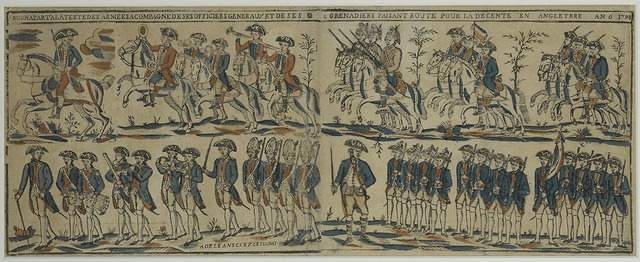 BUONAPARTA LA TETE DES ARMEES ACOMPAGNE DE SES OFFICIERS GENERAUX ET DE SES GRENADIERS FAISANT ROUTE POUR LA DECENTE EN ANGLETERRE AN 6 1798
A ORLEANS CHEZ LETOURMI